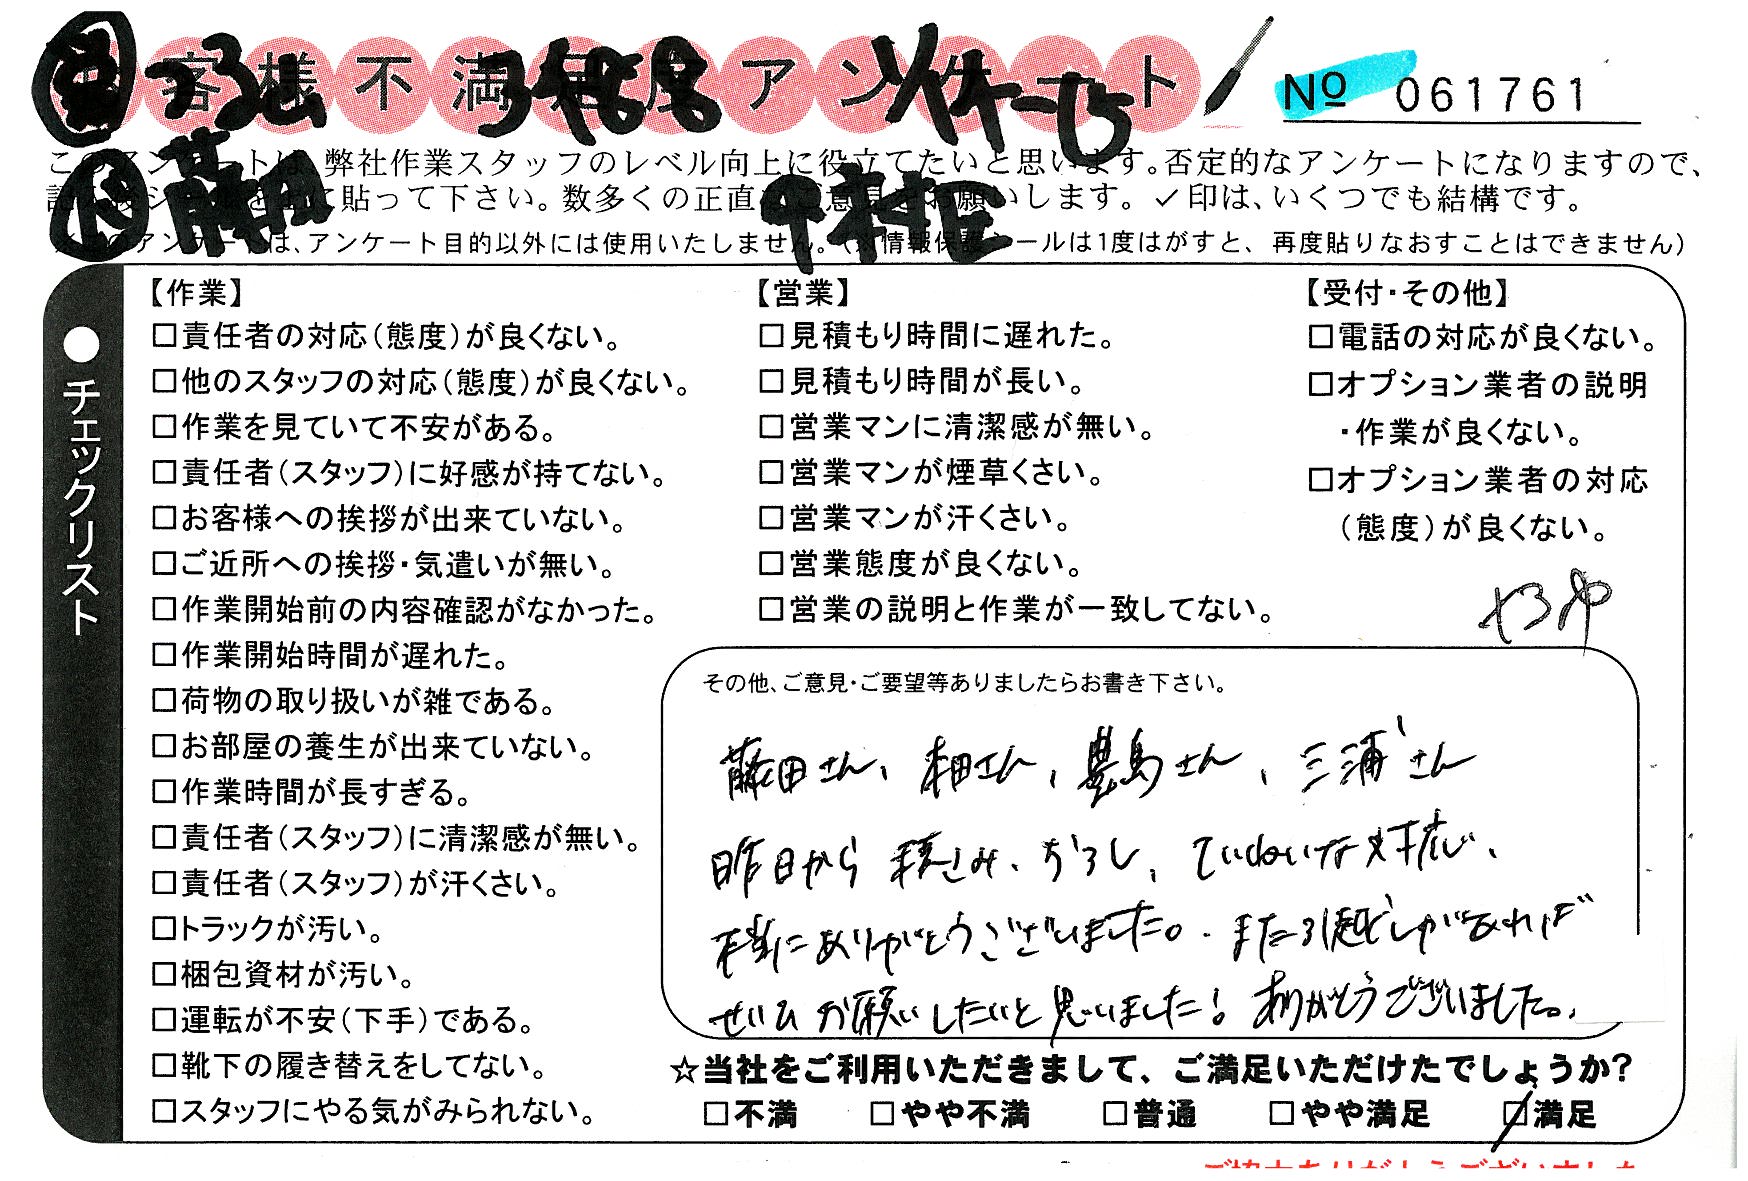 お客様不満足度アンケート
No 061761
このアンケートは、弊社作業スタッフのレベル向上に役立てたいと思います。否定的なアンケートになりますので、
に貼って下さい。数多くの正直なご意見をお願いします。✓印は、いくつでも結構です。
このアンケートは、アンケート目的以外には使用いたしません。(※情報保護シールは1度はがすと、再度貼りなおすことはできません)
藤田
●チェックリスト
【作業】
□責任者の対応(態度)が良くない。
□他のスタッフの対応(態度)が良くない。
□作業を見ていて不安がある。
□責任者(スタッフ)に好感が持てない。
□お客様への挨拶が出来ていない。
□ご近所への挨拶・気遣いが無い。
□作業開始前の内容確認がなかった。
□作業開始時間が遅れた。
□荷物の取り扱いが雑である。
□お部屋の養生が出来ていない。
□作業時間が長すぎる。
□責任者(スタッフ)に清潔感が無い。
□責任者(スタッフ)が汗くさい。
□トラックが汚い。
□梱包資材が汚い。
□運転が不安(下手)である。
□靴下の履き替えをしてない。
□スタッフにやる気がみられない。
【営業】
□見積もり時間に遅れた。
□見積もり時間が長い。
□営業マンに清潔感が無い。
□営業マンが煙草くさい。
□営業マンが汗くさい。
□営業態度が良くない。
□営業の説明と作業が一致してない。
【受付・その他】
□電話の対応が良くない。
□オプション業者の説明
・作業が良くない。
□オプション業者の対応
(態度)が良くない。
その他、ご意見・ご要望等ありましたらお書き下さい。
藤田さん、本田さん、豊島さん、三浦さん
昨日から積こみ、おろし、ていねいな対応、
本当にありがとうございました。またお引越しがあれば
ぜひお願いしたいと思いました!ありがとうございました。
☆当社をご利用いただきまして、ご満足いただけたでしょうか?
□不満 □やや不満 □普通 □やや満足 ☑満足
ご協力ありがとうございました